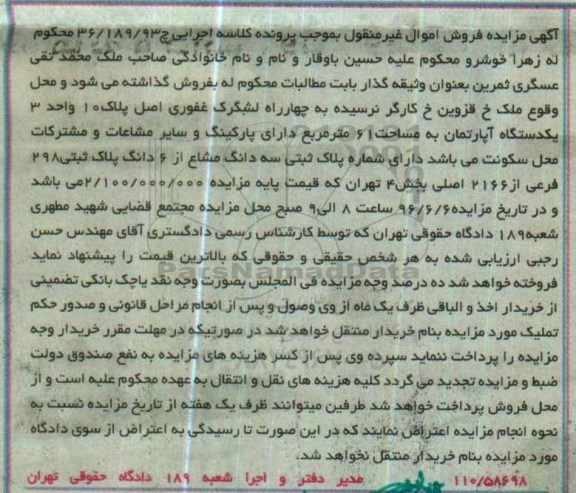 آگهی مزایده فروش اموال غیرمنقول بموجب پرونده کلاسه اجرایی ج۳۶/۱۸۹/۹۳ محکوم
له زهرا خوشرو محکوم علیه حسین باوقار و نام و نام خانوادگی صاحب ملک محمد تقی
عسگری ثمرین بعنوان وثیقه گذار بابت مطالبات محکوم له بفروش گذاشته می شود و محل
وقوع ملک خ قزوین خ کارگر نرسیده به چهارراه لشگرک غفوری اصل پلاک۱۰ واحد ۳
یکدستگاه آپارتمان به مساحت۶۱ مترمربع دارای پارکینگ و سایر مشاعات و مشترکات
محل سکونت می باشد دارای شماره پلاک ثبتی سه دانگ مشاع از ۶ دانگ پلاک ثبتی۲۹۸
فرعی از۲۱۶۶ اصلی بخش۴ تهران که قیمت پایه مزایده ۲/۱۰۰/۰۰۰/۰۰۰می باشد
و در تاریخ مزایده۹۶/۶/۶ ساعت ۸ الی۹ صبح محل مزایده مجتمع قضایی شهید مطهری
شعبه۱۸۹ دادگاه حقوقی تهران که توسط کارشناس رسمی دادگستری آقای مهندس حسن
رجبی ارزیابی شده به هر شخص حقیقی و حقوقی که بالاترین قیمت را پیشنهاد نماید
فروخته خواهد شد ده درصد وجه مزایده فی المجلس بصورت وجه نقد یاچک بانکی تضمینی
از خریدار اخذ و الباقی ظرف یک ماه از وی وصول و پس از انجام مراحل قانونی و صدور حکم
تملیک مورد مزایده بنام خریدار منتقل خواهد شد در صورتیکه در مهلت مقرر خریدار وجه
مزایده را پرداخت ننماید سپرده وی پس از کسر هزینه های مزایده به نفع صندوق دولت
ضبط و مزایده تجدید می گردد کلیه هزینه های نقل و انتقال به عهده محکوم علیه است و از
محل فروش پرداخت خواهد شد طرفین میتوانند ظرف یک هفته از تاریخ مزایده نسبت به
نحوه انجام مزایده اعتراض نمایند که در این صورت تا رسیدگی به اعتراض از سوی دادگاه
مورد مزایده بنام خریدار منتقل نخواهد شد.
۱۱۰/۵۸۶۹۸ مدیر دفتر و اجرا شعبه ۱۸۹ دادگاه حقوقی تهران
ParsNamadData